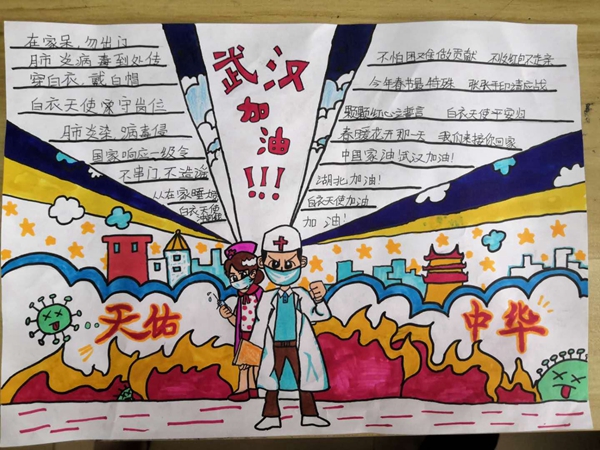 在家呆,勿出门
肺炎病毒到处传
穿白衣,戴白帽
白衣天使守岗位
肺炎染 病毒侵
国家响应一级令
不串门 不造谣
从在家睡
白衣天使
武汉
加油
!!!
不怕困难做贡献
今年春节最特殊
颗颗红心 白衣天使平安归
春暖花开那一天 我们来接你回家
中国加油武汉加油!
湖北加油!
白衣天使加油
加油!
天佑
中华